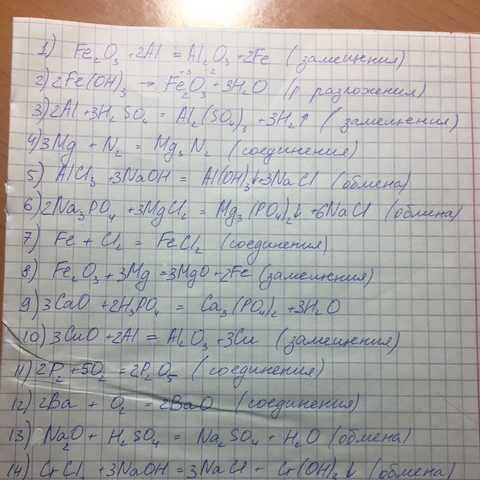 1) Fe₂O₃ + 2Al = Al₂O₃ + 2Fe (замещения)
2) 2Fe(OH)₃ → Fe₂O₃ + 3H₂O (р. разложения)
3) 2Al + 3H₂SO₄ = Al₂(SO₄)₃ + 3H₂↑ (замещения)
4) 3Mg + N₂ = Mg₃N₂ (соединения)
5) AlCl₃ + 3NaOH = Al(OH)₃↓ + 3NaCl (обмена)
6) 2Na₃PO₄ + 3MgCl₂ = Mg₃(PO₄)₂↓ + 6NaCl (обмена)
7) Fe + Cl₂ = FeCl₂ (соединения)
8) Fe₂O₃ + 3Mg = 3MgO + 2Fe (замещения)
9) 3CaO + 2H₃PO₄ = Ca₃(PO₄)₂ + 3H₂O
10) 3CuO + 2Al = Al₂O₃ + 3Cu (замещения)
11) 2P₂ + 5O₂ = 2P₂O₅ (соединения)
12) 2Ba + O₂ = 2BaO (соединения)
13) NaO₂ + H₂SO₄ = Na₂SO₄ + H₂O (обмена)
14) CrCl₃ + 3NaOH = 3NaCl + Cr(OH)₃↓ (обмена)